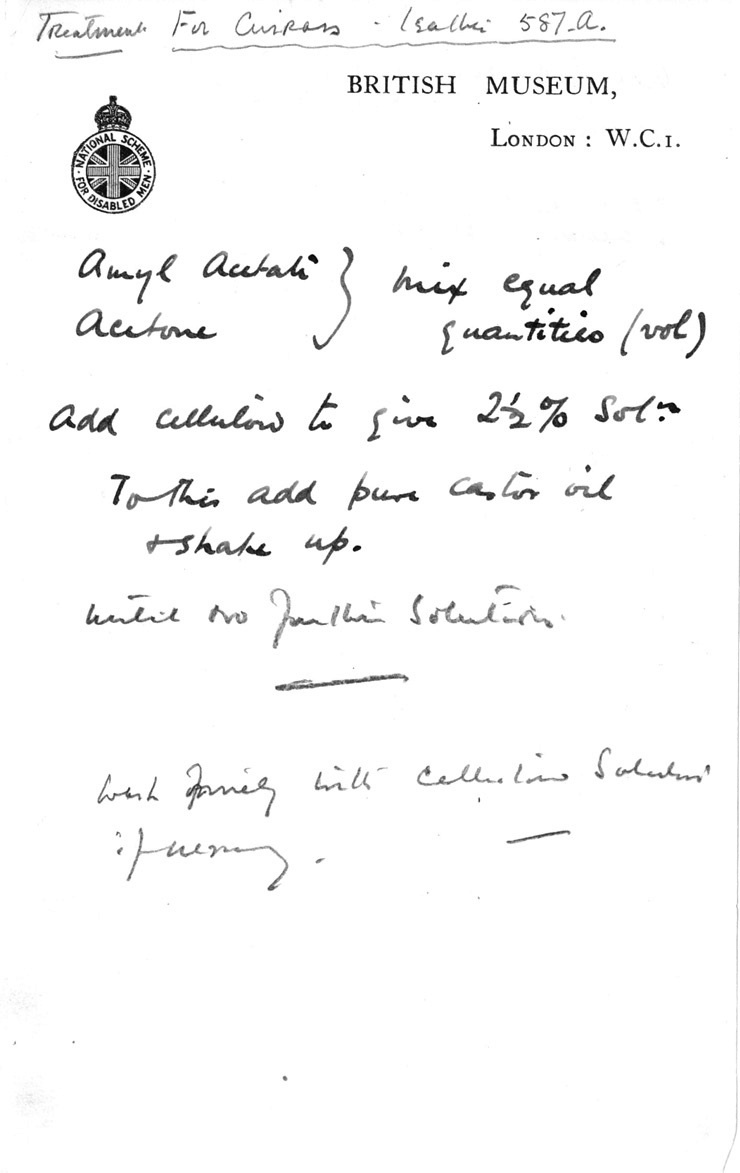 Treatment For Cuirass - leather 587-A.
BRITISH MUSEUM,
LONDON : W.C.1.
NATIONAL SCHEME
FOR DISABLED MEN
Amyl Acetate } mix equal
Acetone quantities (vol)
Add celluloid to give 2½% Solⁿ.
To this add pure castor oil
+ shake up.
until no further Solution.
wash finally with celluloid Solution
if necessary.